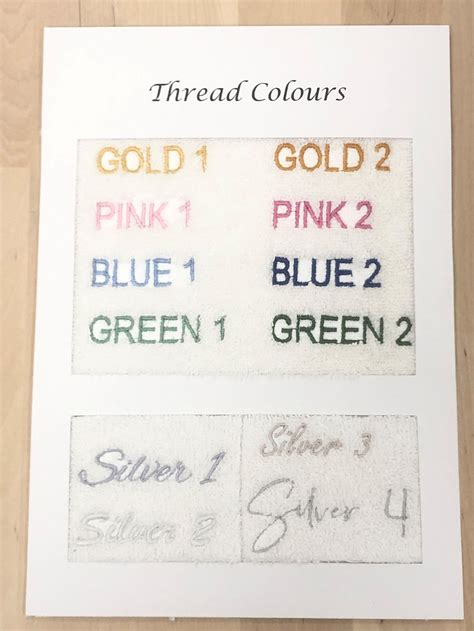 Thread Colours
GOLD 1 GOLD 2
PINK 1 PINK 2
BLUE 1 BLUE 2
GREEN 1 GREEN 2
Silver 1 Silver 3
Silver 2 Silver 4